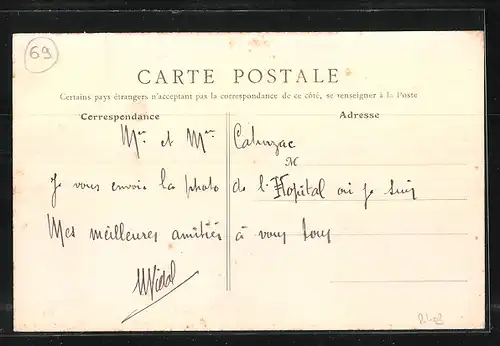 69
CARTE POSTALE
Certains pays étrangers n'acceptant pas la correspondance de ce côté, se renseigner à la Poste
Correspondance
Adresse
Mr et Mme
M
Je vous envoie la photo de l'Hopital où je suis
Mes meilleures amitiés à vous tous
Vidal